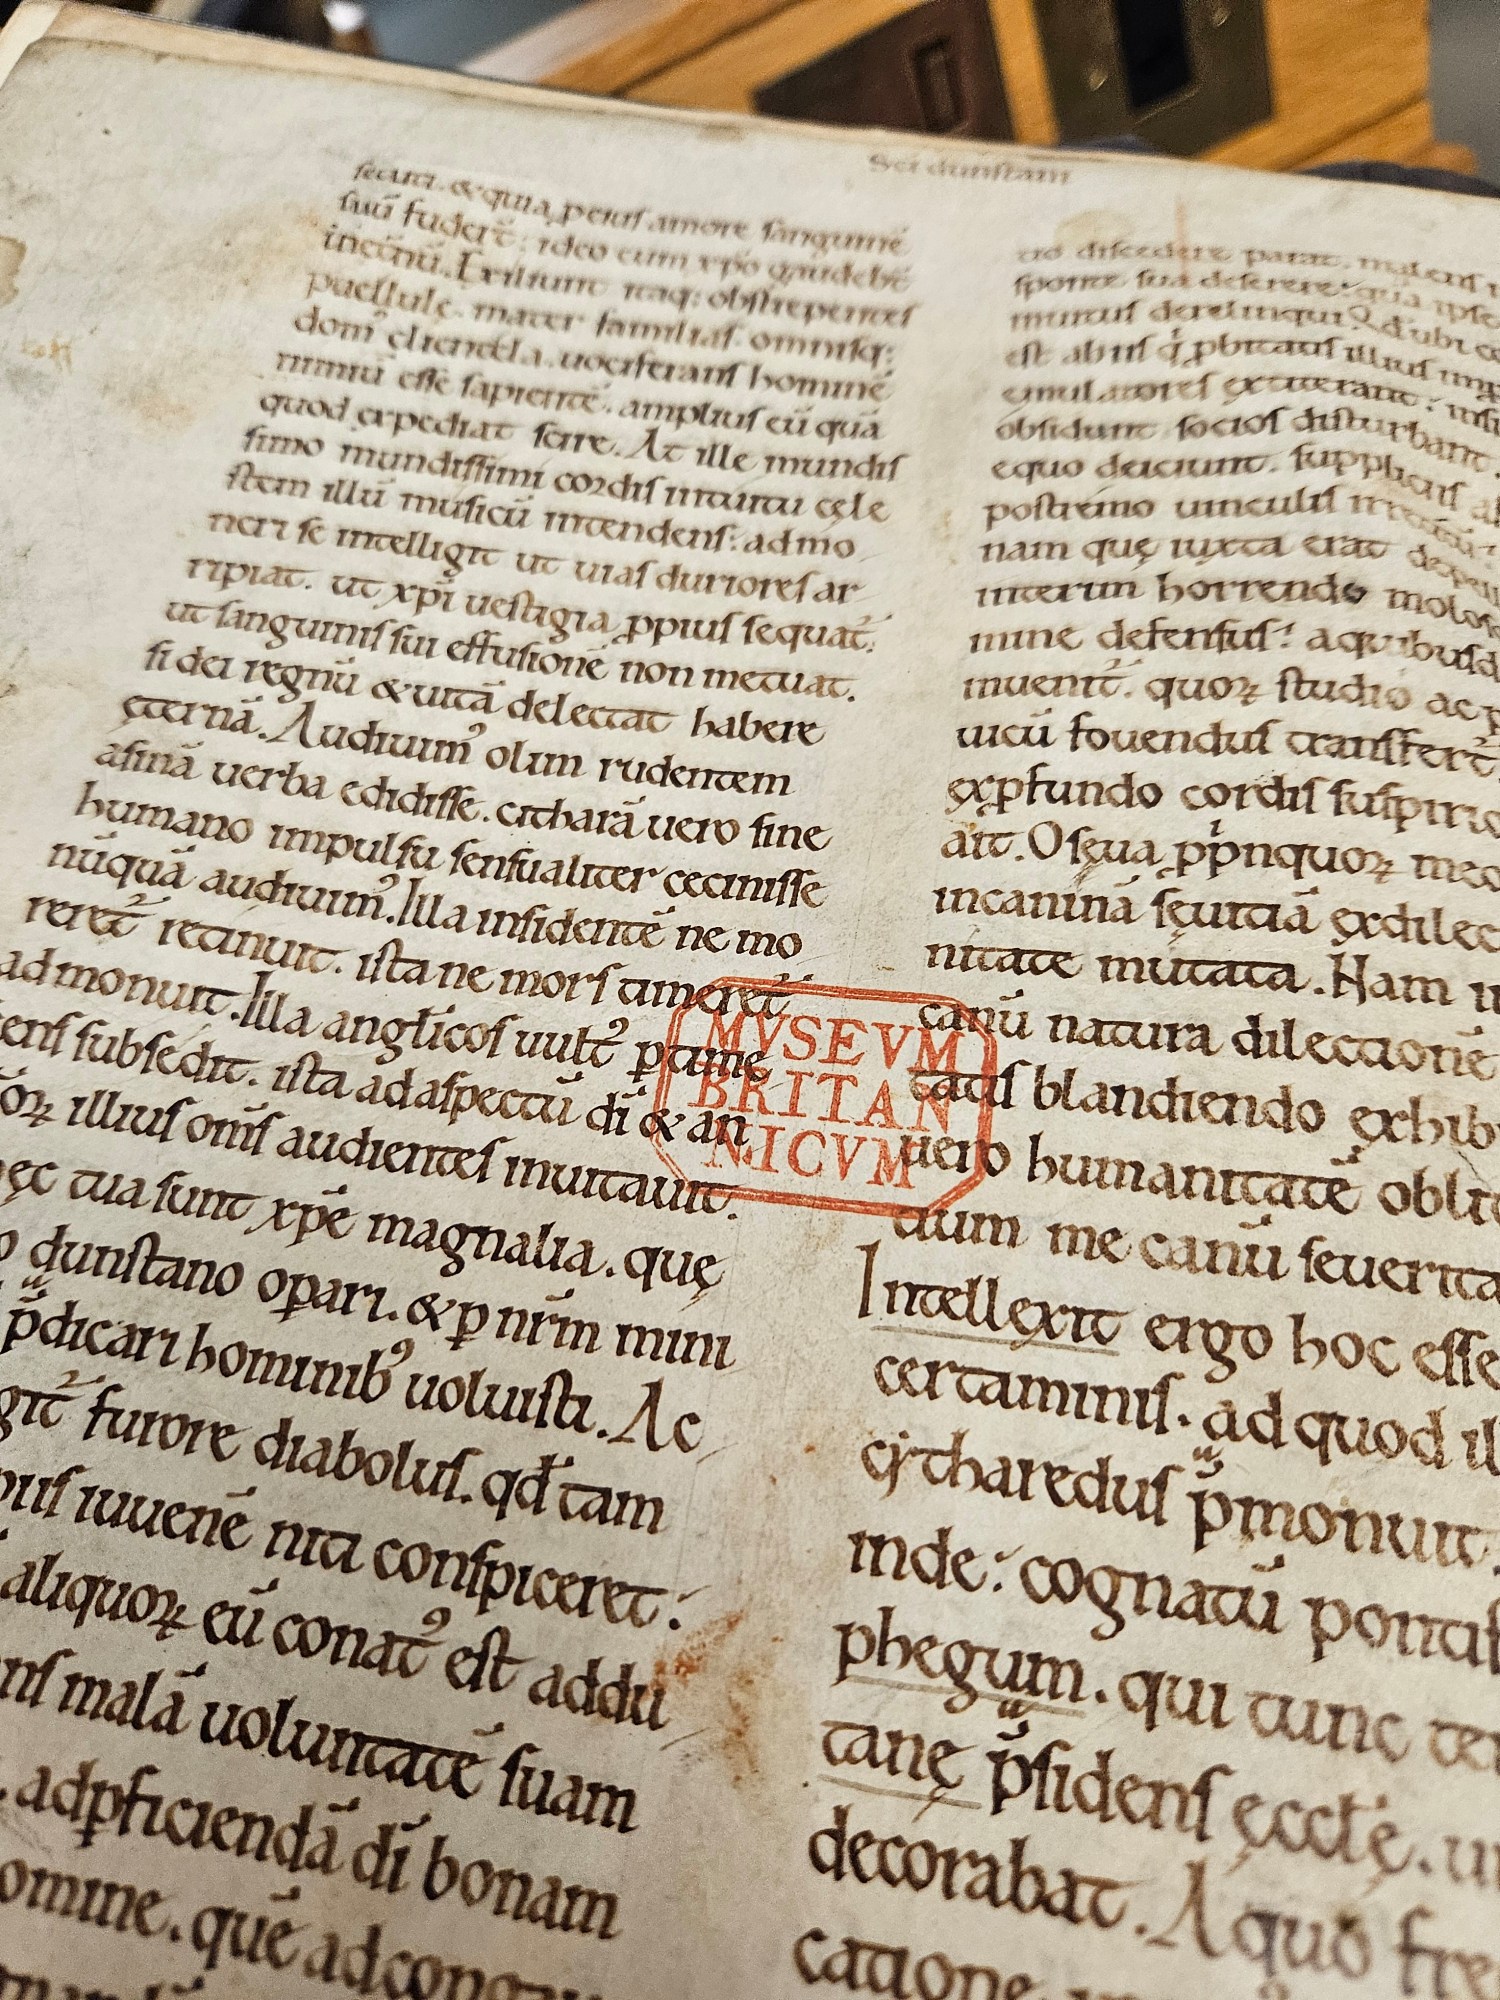 Sci dunstani
secuti. & quia ꝓ eius amore sanguinē
suū fuder̄t: ideo cum xp̄o gaudebt̄
inet̄nū. Exilium itaq: obstrepentes
puellulę. mater familias. omnisq:
domꝰ clientela. uociferans hominē
nimiū esse sapientē. amplius eū quā
quod expediat scire. At ille mundis
simo mundissimi cordis intuitu cęle
stem illū musicū intendens: admo
neri se intelligit ut uias duriores ar
ripiat. ut xp̄i uestigia ꝓpius sequat̄.
ut sanguinis sui effusionē non metuat.
si dei regnū & uitā delectat habere
ęternā. Audiuimꝰ olim rudentem
asinā uerba edidisse. citharā uero sine
humano impulsu sensualiter cecinisse
nūquā audiuimꝰ. Illa insidentē ne mo
reret̄ retinuit. ista ne mors timeret̄
admonuit. Illa anglicos uult̄ ꝑtime
scens subsedit. ista ad aspectū dī & an
illius om̄s audientes inuitauit.
tua sunt xp̄e magnalia. quę
dunstano oꝑari. & ꝑ nr̄m mini
p̄dicari hominibꝰ uoluisti. Ac
furore diabolus. qd̄ tam
iuuenē niti conspiceret:
aliquoꝝ eū conatꝰ est addu
malā uoluntatē suam
adꝑficiendā dī bonam
omine. quē ad
discedere parat. malens
sponte sua deserere: quā ipse
inuitus derelinqui. Qd' ubi
est ab iis q̇ ꝓbitatis illius
ęmulatores extiterant:
obsidunt socios disturbant.
equo deiciunt. suppliciis
postremo uinculis
nam quę iuxta erat
interim horrendo
mine defensus: a quibusd
inuenit̄. quoꝝ studio ac
uicū fouendus transfert̄
ex ꝓfundo cordis suspirio
ait. O sęua ꝓpinquoꝝ meo
in caninā sęuitiā ex dilec
nitate mutata. Nam
canū natura dilectionē
tatis blandiendo exhib
uero humanitatē obli
tium me canū seuerita
Intellexit ergo hoc esse
certaminis. ad quod il
cytharedus p̄monuit.
inde: cognatū
phegum. qui tunc
tanę p̄sidens ęccłę.
decorabat. A quo fre
catione
MVSEVM
BRITAN
NICVM